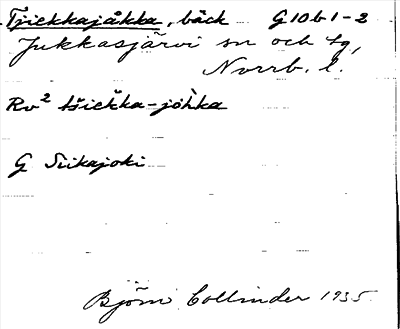 Tjiekkajåkka, bäck G10b1-2
Jukkasjärvi sn och tg,
Norrb. l.
Rv² tšiekka-jòhka
G Siikajoki
Björn Collinder 1935